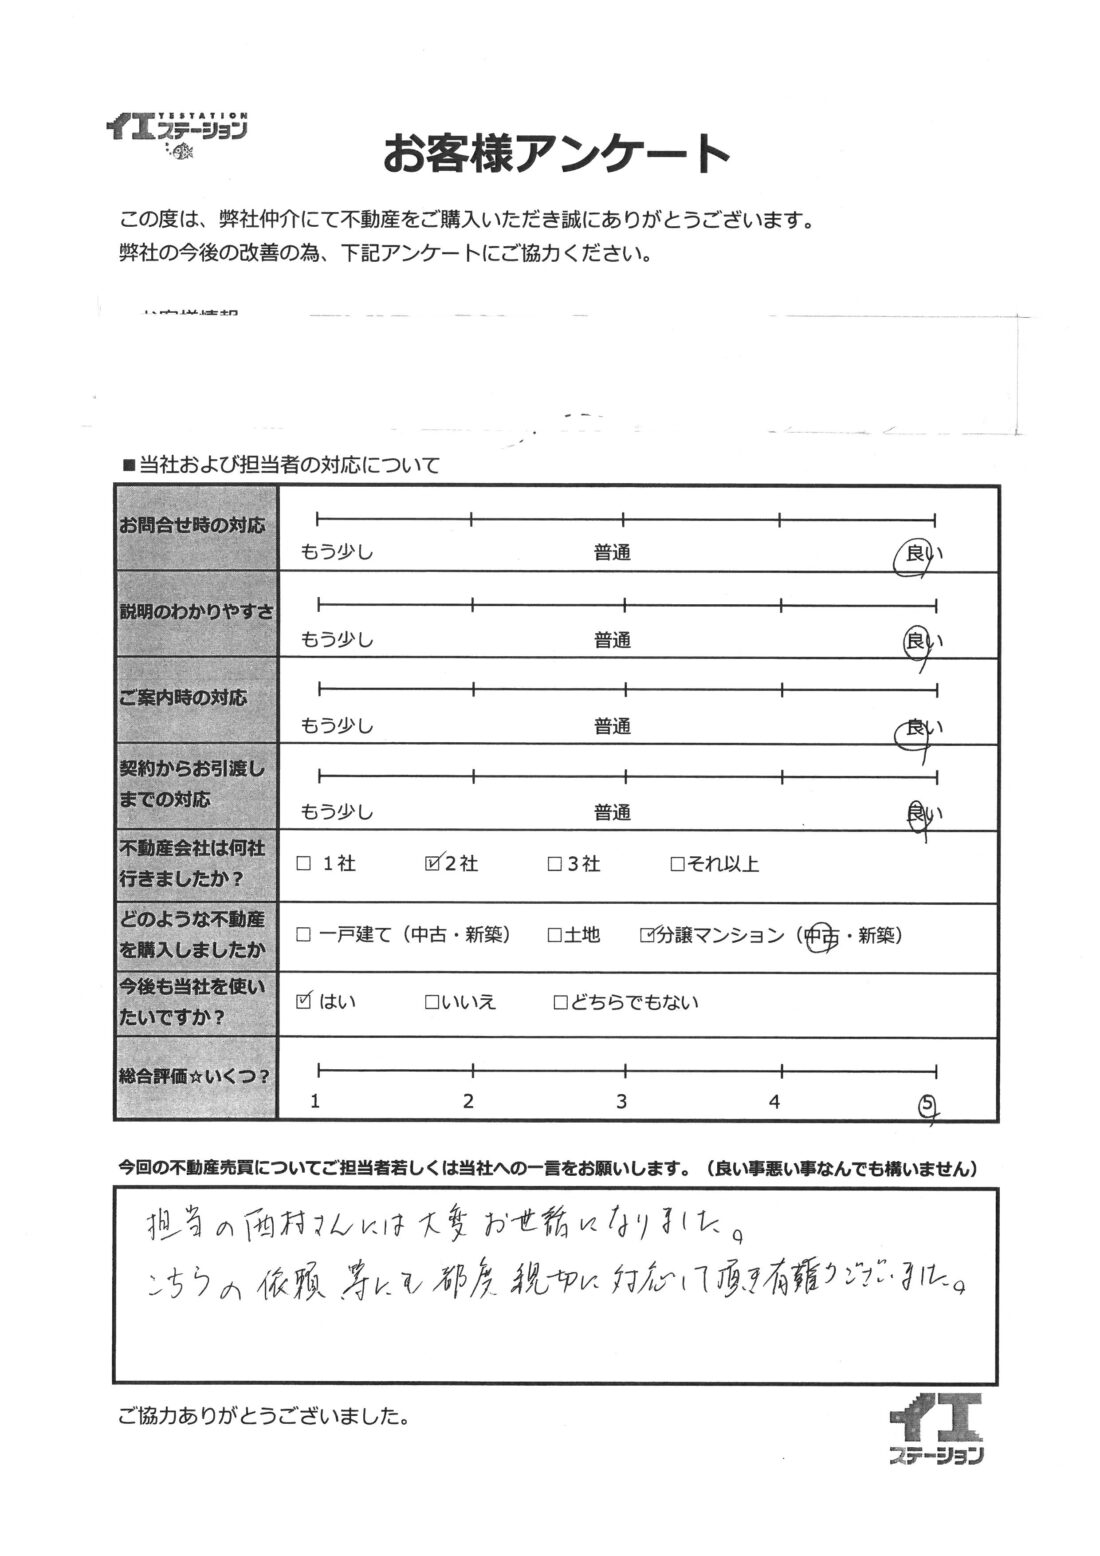 イエステーション
YESTATION
お客様アンケート
この度は、弊社仲介にて不動産をご購入いただき誠にありがとうございます。
弊社の今後の改善の為、下記アンケートにご協力ください。
■当社および担当者の対応について
お問合せ時の対応
もう少し 普通 良い
説明のわかりやすさ
もう少し 普通 良い
ご案内時の対応
もう少し 普通 良い
契約からお引渡し
までの対応
もう少し 普通 良い
不動産会社は何社
行きましたか？
□ 1社 ☑2社 □3社 □それ以上
どのような不動産
を購入しましたか
□ 一戸建て（中古・新築） □土地 ☑分譲マンション（中古・新築）
今後も当社を使い
たいですか？
☑ はい □いいえ □どちらでもない
総合評価☆いくつ？
1 2 3 4 5
今回の不動産売買についてご担当者若しくは当社への一言をお願いします。（良い事悪い事なんでも構いません）
担当の西村さんには大変お世話になりました。
こちらの依頼等にも都度親切に対応して頂き有難うございました。
ご協力ありがとうございました。
イエ
ステーション